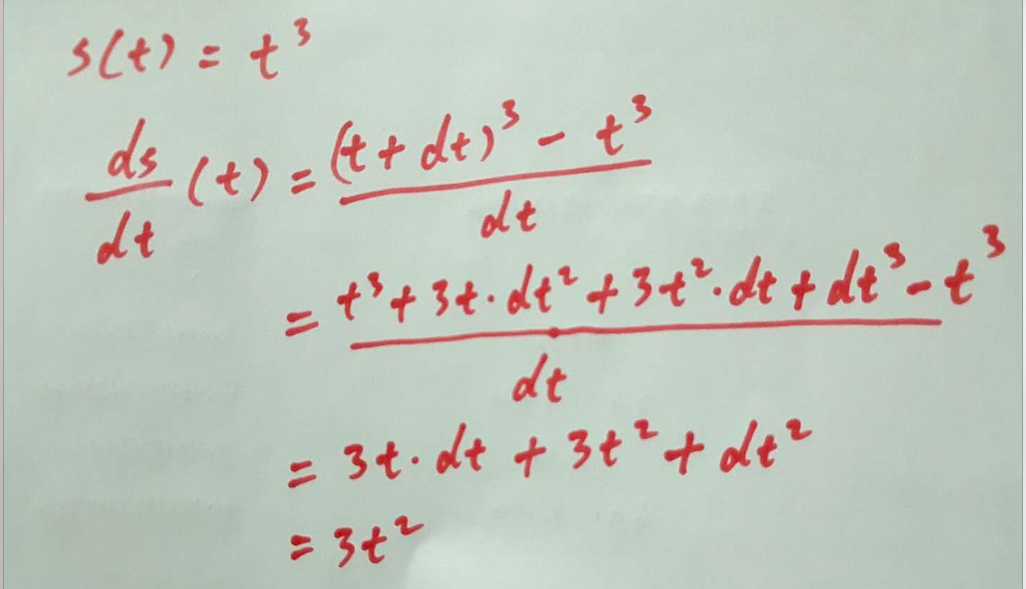 s(t) = t³
ds/dt (t) = ((t + dt)³ - t³)/dt
= (t³ + 3t·dt² + 3t²·dt + dt³ - t³)/dt
= 3t·dt + 3t² + dt²
= 3t²